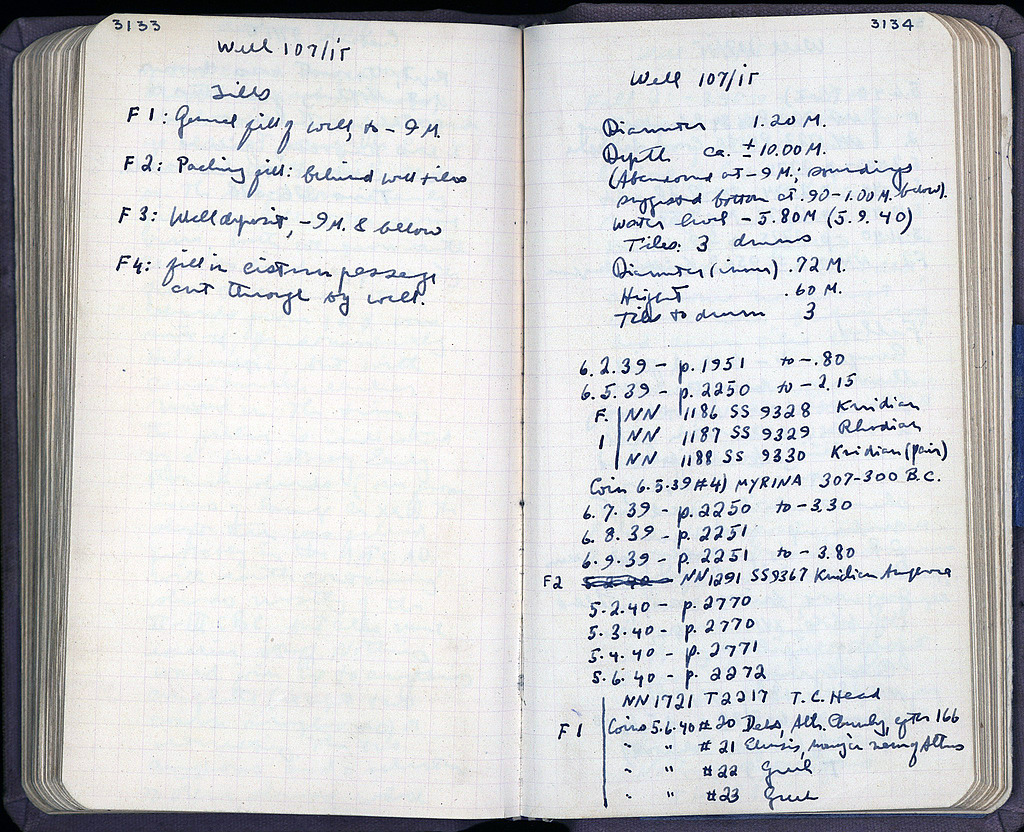 3133
Well 107/ΙΓ
Fills
F 1: General fill of well, to - 9 M.
F 2: Packing fill: behind well tiles
F 3: Well deposit, -9 M. & below
F 4: fill in cistern passage
cut through by well.
3134
Well 107/ΙΓ
Diameter 1.20 M.
Depth ca. ± 10.00 M.
(Abandoned at -9 M.; soundings
suggested bottom at .90-1.00 M. below).
Water level - 5.80 M (5.9.40)
Tiles: 3 drums
Diameter (inner) .72 M.
Height .60 M.
Tiles to drum 3
6.2.39 - p. 1951 to -.80
6.5.39 - p. 2250 to - 2.15
F. NN 1186 SS 9328 Knidian
1 NN 1187 SS 9329 Rhodian
NN 1188 SS 9330 Knidian (pair)
Coin 6.5.39 #4) MYRINA 307-300 B.C.
6.7.39 - p. 2250 to - 3.30
6.8.39 - p. 2251
6.9.39 - p. 2251 to - 3.80
F2 5.2.40 - NN 1291 SS 9367 Knidian Amphora
5.2.40 - p. 2770
5.3.40 - p. 2770
5.4.40 - p. 2771
5.6.40 - p. 2272
NN 1721 T 2217 T.C. Head
F 1 Coins 5.6.40 #20 Delos, Ath. after 166
" " #21 Eleusis, Athens
" " #22 Greek
" " #23 Greek